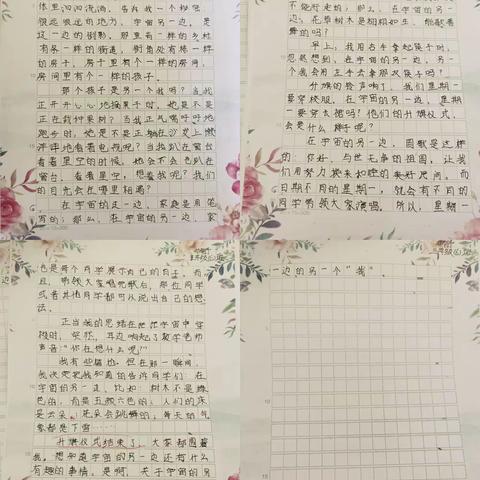 体里汩汩流淌，告诉我一个秘密
很远很远的地方，宇宙另一边，是
这一边的倒影，那里有一样的乡村
有一样的街道，街角处有栋一样
的房子，房子里有一样的房间，
房间里有一个一样的孩子。
那个孩子是另一个我吗？当我
正开开心心地摘果子时，她是不是
正在栽种果树？当我正气喘呼呼地
跑步时，她是不是正躺在沙发上懒
洋洋地看着电视呢？当我趴在窗台
看着星空的时候，她会不会也趴在
窗台，看着星空，想着我呢？我们的
目光会在哪里相遇？
在宇宙的这一边，家庭是用笔
写的；那么，在宇宙的另一边，家
不能行走的；那么，在宇宙的另一
边，花草树木是栩栩如生、能歌善舞
的吗？
早上，我用右手拿起筷子时，
忽然想到，在宇宙的另一边，另一
个我会用左手去拿那双筷子吗？
升旗的铃声响了，我们星期一
要穿校服，在宇宙的另一边，星期
一要穿太猫吗？他们的升旗仪式，
会是什么样子呢？
在宇宙的另一边，国歌是这样
的：你好，与世无争的祖国，让我
们用努力换来和睦的美好民间。而
日期不同的星期一，就会有不同的
同学带领大家演唱。所以，星期一
也是每个同学展示自己的日子。而且
，带领大家唱完歌后，那位同学
或者其他同学都可以说出自己的想
法。
正当我的思绪在茫茫宇宙中穿
梭时，突然，耳边响起了数学老师
的声音“你在想什么呢？”
我有些尴尬，但在那一瞬间，
我决定把我知道的告诉同学们：在
宇宙的另一边，比如，树木不是绿
色的，而是五颜六色的；人们的床
是云朵，花朵会跳舞的；每天的气
象都是下雪……
升旗仪式结束了，大家都围着
我，想知道宇宙的另一边还有什么
有趣的事情。是啊，关于宇宙的另
一边的另一个“我”。